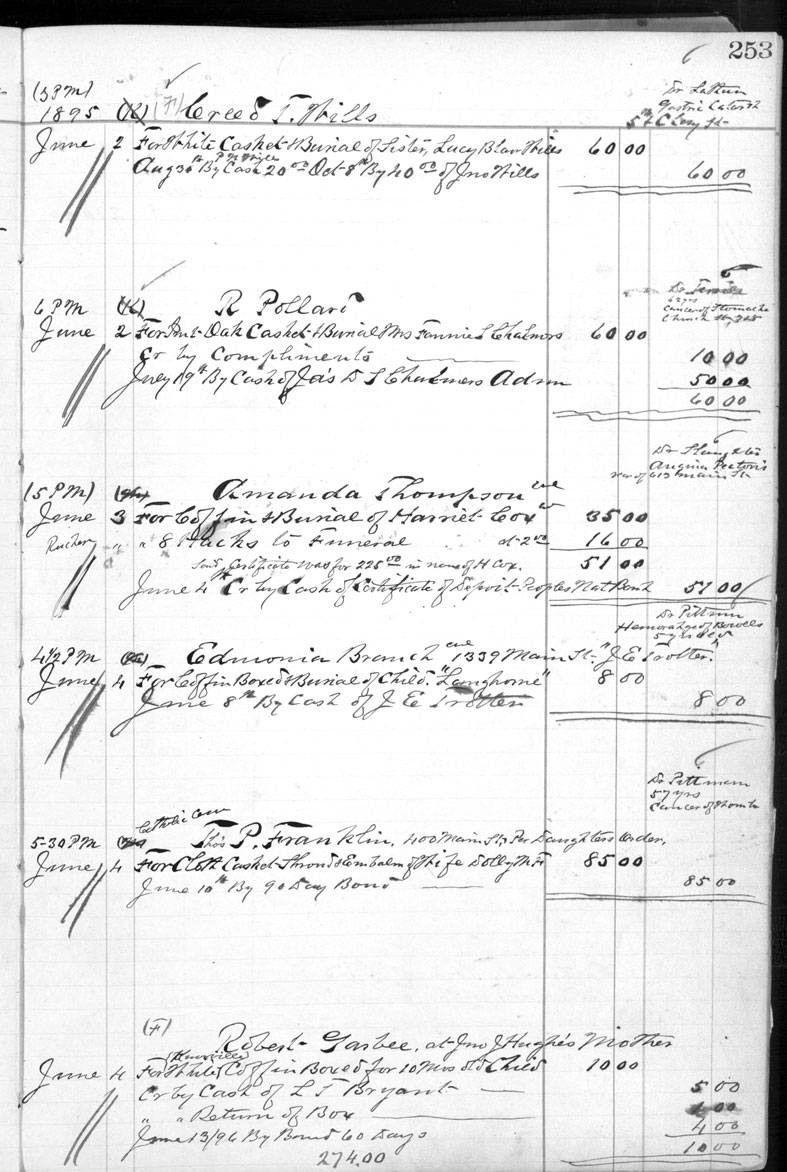 253
(3 PM)
1895 (F) Creed T. Wills
Dr Lathum
Gastric Catarrh
June 2 For White Casket & Burial of Sister, Lucy Blair Wills 60 00
Aug 30th By Cash 20 00 Oct 8th By 40 00 of Jno Wills 60 00
6 PM R Pollard
62 yrs
Cancer of Stomach
June 2 For Imt Oak Casket & Burial Mrs Fannie L Chalmers 60 00
Cr by Compliments 10 00
July 19th By Cash of Jas D L Chalmers Admr 50 00
60 00
Dr Slaughter
Angina Pectoris
rear of 613 Main St.
(5 PM) Amanda Thompson col
June 3 For Coffin & Burial of Harriet Cox col 35 00
Rucher " " 8 Hacks to Funeral at 2 00 16 00
Said Certificate was for 225 00 in name of H Cox. 51 00
June 4th Cr by Cash of Certificate of Deposit Peoples Nat Bank 51 00
Dr Pittman
Hemorahge of Bowells
5 yrs
4 1/2 PM Edmonia Branch col 1339 Main St. "J E Trotter."
June 4 For Coffin Boxed & Burial of Child. "Langhorne" 8 00
June 8th By Cash of J E Trotter 8 00
Dr Pittman
57 yrs
Cancer of Womb
Catholic Cem
5-30 PM Thos P. Franklin, 400 Main St, Per Daughters order,
June 4 For Cloth Casket Shroud & Embalm of Wife Dolly M F 85 00
June 10th By 90 Day Bond 85 00
(F) Robert Garbee, at Jno J Hughes Mother
June 4 For White Coffin Boxed for 10 Mos old Child 10 00
Cr by Cash of L T Bryant 5 00
" " Return of Box 1 00
June 13/96 By Bond 60 Days 4 00
274.00 10 00